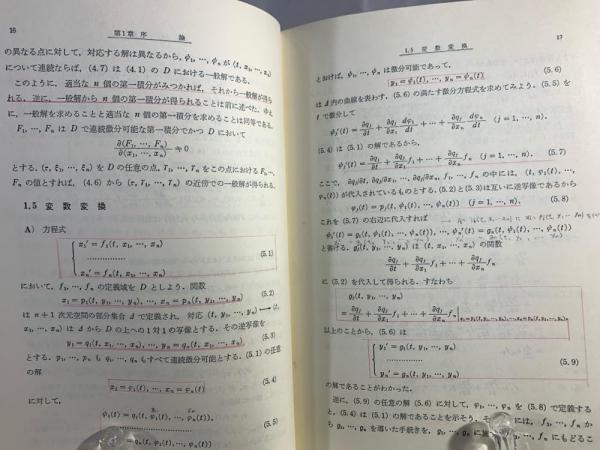 16
第1章 序 論
の異なる点に対して，対応する解は異なるから，φ₁, ⋯, φₙ が (t, x₁, ⋯, xₙ)
について連続ならば，(4.7) は (4.1) の D における一般解である．
このように，適当な n 個の第一積分がみつかれば，それから一般解が得ら
れる．逆に，一般解から n 個の第一積分が得られることは前に述べた．ゆえ
に，一般解を求めることと適当な n 個の第一積分を求めることは同等である．
F₁, ⋯, Fₙ は D で連続微分可能な第一積分でかつ D において
∂(F₁, ⋯, Fₙ)/∂(x₁, ⋯, xₙ) ≠ 0
とする．(τ, ξ₁, ⋯, ξₙ) を D の任意の点，Γ₁, ⋯, Γₙ をこの点における F₁, ⋯,
Fₙ の値とすれば，(4.6) から (τ, Γ₁, ⋯, Γₙ) の近傍での一般解が得られる．
1.5 変 数 変 換
A) 方程式
x₁′ = f₁(t, x₁, ⋯, xₙ)
⋯⋯⋯⋯ (5.1)
xₙ′ = fₙ(t, x₁, ⋯, xₙ)
において，f₁, ⋯, fₙ の定義域を D としよう．関数
x₁ = p₁(t, y₁, ⋯, yₙ), ⋯, xₙ = pₙ(t, y₁, ⋯, yₙ) (5.2)
は n+1 次元空間の部分集合 Δ で定義され，対応 (t, y₁, ⋯, yₙ) ⟼ (t,
x₁, ⋯, xₙ) は Δ から D の上への1対1の写像とする．その逆写像を
y₁ = q₁(t, x₁, ⋯, xₙ), ⋯, yₙ = qₙ(t, x₁, ⋯, xₙ) (5.3)
とする．p₁, ⋯, pₙ も q₁, ⋯, qₙ もすべて連続微分可能とする．(5.1) の任意
の解
x₁ = φ₁(t), ⋯, xₙ = φₙ(t) (5.4)
に対して，
ψ₁(t) = q₁(t, φ₁(t), ⋯, φₙ(t)),
⋯⋯⋯⋯ (5.5)
= qₙ(t, φ₁(t), ⋯, φₙ(t))
1.5 変 数 変 換
17
とおけば，ψ₁, ⋯, ψₙ は微分可能であって，
y₁ = ψ₁(t), ⋯, yₙ = ψₙ(t) (5.6)
は Δ 内の曲線を表わす．(5.6) の満たす微分方程式を求めてみよう．(5.5) を
t で微分して
ψⱼ′(t) = ∂qⱼ/∂t + ∂qⱼ/∂x₁ dφ₁/dt + ⋯ + ∂qⱼ/∂xₙ dφₙ/dt (j = 1, ⋯, n).
(5.4) は (5.1) の解であるから，
ψⱼ′(t) = ∂qⱼ/∂t + ∂qⱼ/∂x₁ f₁ + ⋯ + ∂qⱼ/∂xₙ fₙ (j = 1, ⋯, n). (5.7)
ここで，∂qⱼ/∂t, ∂qⱼ/∂x₁, ⋯, ∂qⱼ/∂xₙ, f₁, ⋯, fₙ の中には，(t, φ₁(t), ⋯,
φₙ(t)) が代入されているものとする．(5.2) と (5.3) は互いに逆写像であるから
φⱼ(t) = pⱼ(t, ψ₁(t), ⋯, ψₙ(t)) (j = 1, ⋯, n). (5.8)
これを (5.7) の右辺に代入すれば
ψ₁′(t) = g₁(t, ψ₁(t), ⋯, ψₙ(t)), ⋯, ψₙ′(t) = gₙ(t, ψ₁(t), ⋯, ψₙ(t))
と書ける．gⱼ(t, y₁, ⋯, yₙ) は (t, x₁, ⋯, xₙ) の関数
∂qⱼ/∂t + ∂qⱼ/∂x₁ f₁ + ⋯ + ∂qⱼ/∂xₙ fₙ
に (5.2) を代入して得られる．すなわち
gⱼ(t, y₁, ⋯, yₙ)
= ∂qⱼ/∂t + ∂qⱼ/∂x₁ f₁ + ⋯ + ∂qⱼ/∂xₙ fₙ |x₁=p₁(t, y₁, ⋯, yₙ), ⋯, xₙ=pₙ(t, y₁, ⋯, yₙ)
以上のことから，(5.6) は
y₁′ = g₁(t, y₁, ⋯, yₙ)
⋯⋯⋯⋯ (5.9)
yₙ′ = gₙ(t, y₁, ⋯, yₙ)
の解であることがわかった．
逆に，(5.9) の任意の解 (5.6) に対して，φ₁, ⋯, φₙ を (5.8) で定義する
と，(5.4) は (5.1) の解であることを示そう．そ には，f₁, ⋯, fₙ か
ら g₁, ⋯, gₙ を導いた手続きを，g₁, ⋯, gₙ に施 , fₙ にもどるこ